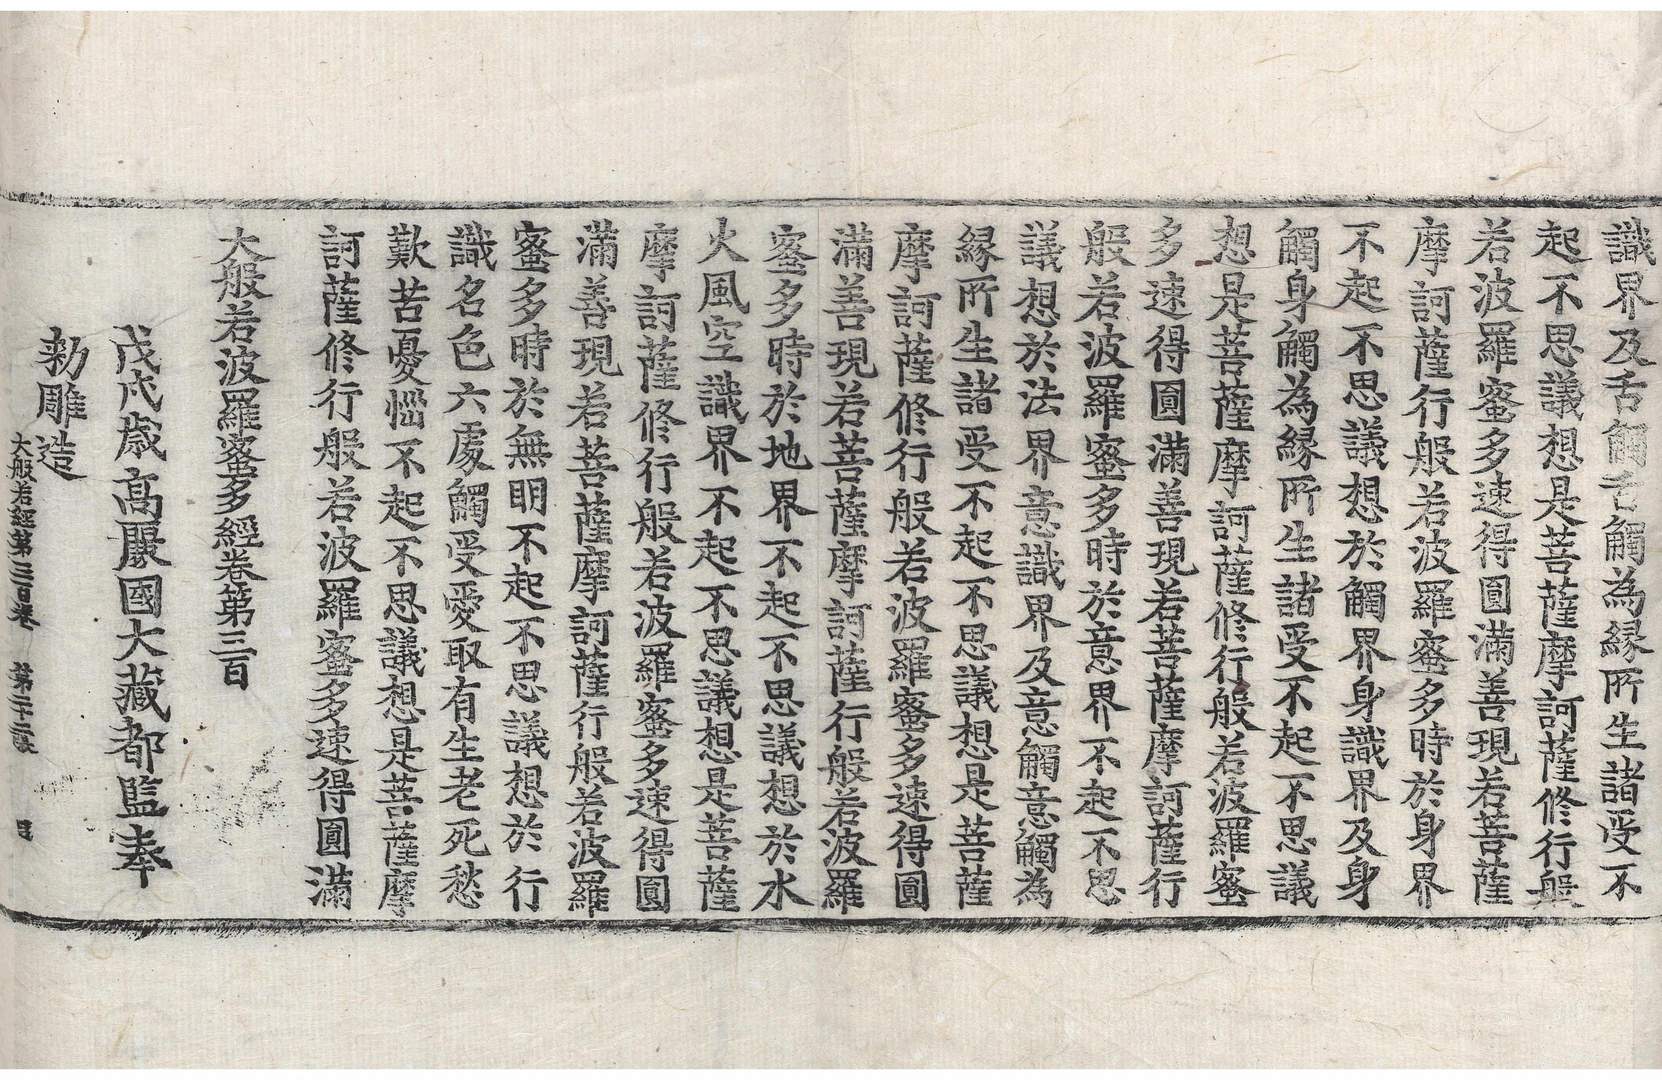 識界及舌觸舌觸為緣所生諸受不
起不思議想是菩薩摩訶薩修行般
若波羅蜜多速得圓滿善現若菩薩
摩訶薩行般若波羅蜜多時於身界
不起不思議想於觸界身識界及身
觸身觸為緣所生諸受不起不思議
想是菩薩摩訶薩修行般若波羅蜜
多速得圓滿善現若菩薩摩訶薩行
般若波羅蜜多時於意界不起不思
議想於法界意識界及意觸意觸為
緣所生諸受不起不思議想是菩薩
摩訶薩修行般若波羅蜜多速得圓
滿善現若菩薩摩訶薩行般若波羅
蜜多時於地界不起不思議想於水
火風空識界不起不思議想是菩薩
摩訶薩修行般若波羅蜜多速得圓
滿善現若菩薩摩訶薩行般若波羅
蜜多時於無明不起不思議想於行
識名色六處觸受愛取有生老死愁
歎苦憂惱不起不思議想是菩薩摩
訶薩修行般若波羅蜜多速得圓滿
大般若波羅蜜多經卷第三百
戊戌歲高麗國大藏都監奉
勑雕造
大般若經第三百卷 第二十三張